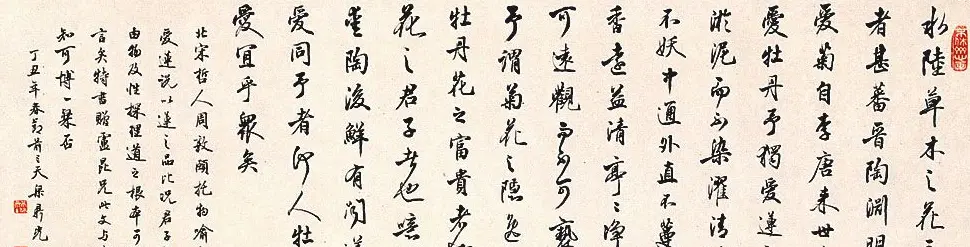 水陸草木之花
者甚蕃晉陶淵明
愛菊自李唐來世
愛牡丹予獨愛蓮
淤泥而不染濯清
不妖中通外直不蔓
香遠益清亭亭淨
可遠觀而不可褻
予謂菊花之隱逸
牡丹花之富貴者
花之君子者也噫
愛陶後鮮有聞蓮
愛同予者何人牡
愛宜乎眾矣
北宋哲人周敦頤托物喻
愛蓮說以蓮之品比況君子
由物及性探理道之根本可
言矣特書贈靈昆兄此文与
知可博一粲否
丁丑年春節前三天梁鼎光